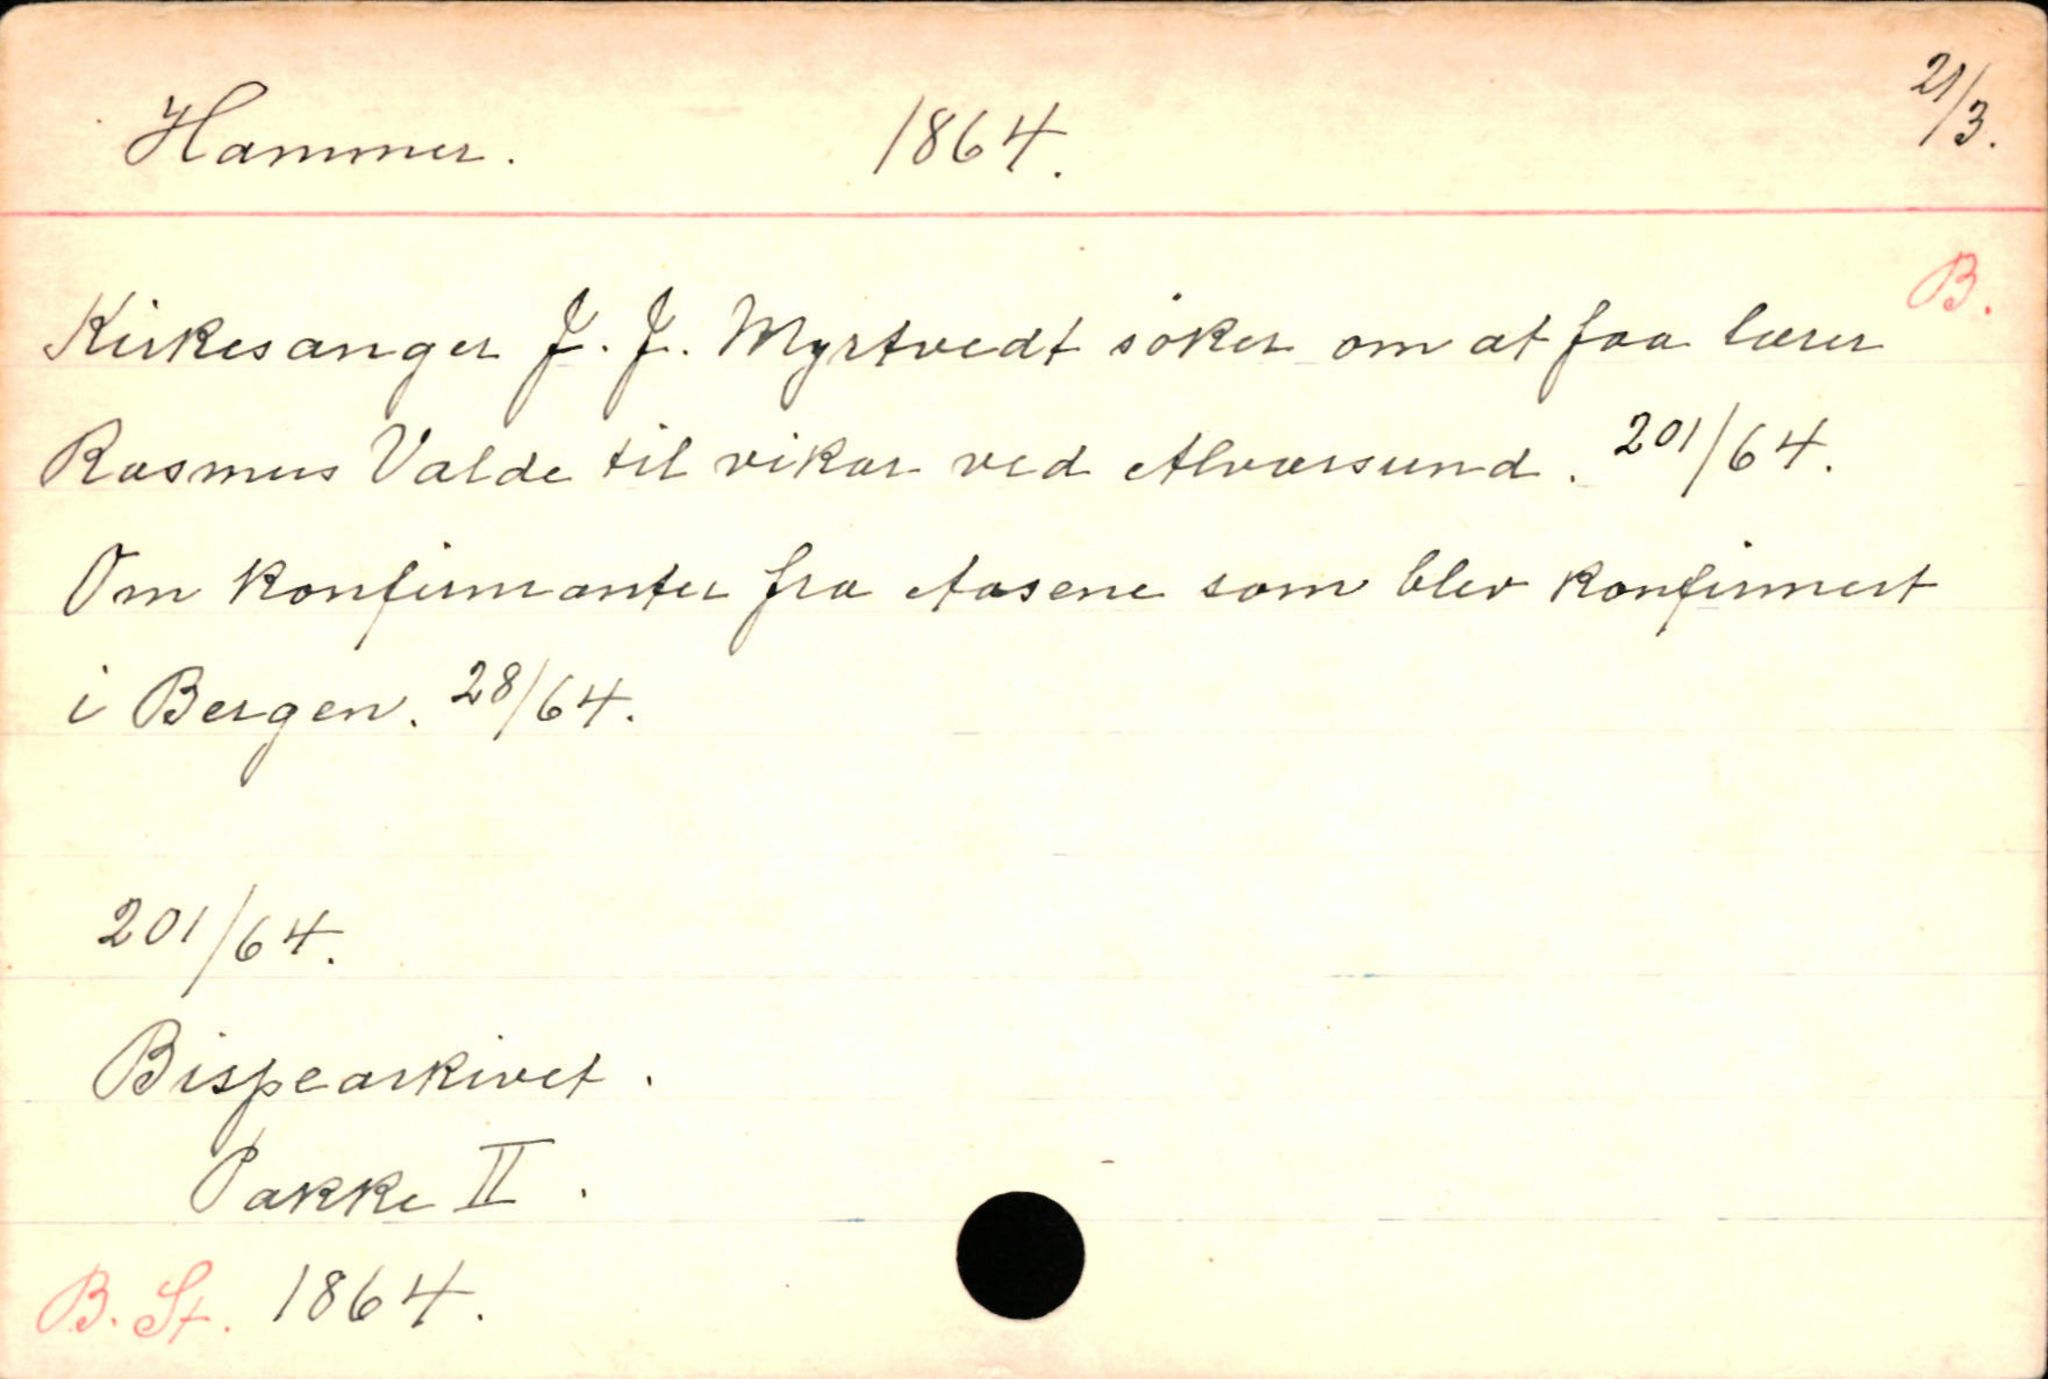 Hammer. 1864. 21/3.
B.
Kirkesanger J. J. Myrtvedt söker om at faa lærer
Rasmus Valde til vikar ved Alværsund. 201/64.
Om konfirmanter fra Aasene som blev konfirmert
i Bergen. 28/64.
201/64.
Bispearkivet.
Pakke II.
B. St. 1864.